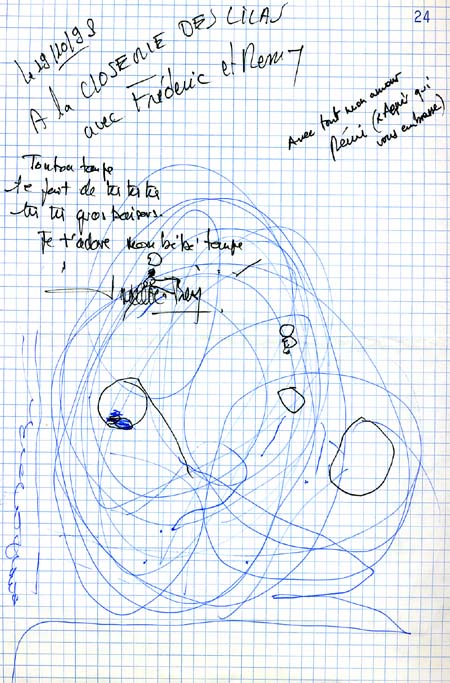 24
le 29/10/98
A la CLOSERIE DES LILAS
avec Frédéric et Remy
Avec tout mon amour
Rémi (& Aggie qui
vous embrasse)
Tonton taupe
te fait de tu tu tu
tu tu gros baisers.
Je t'adore mon bébé taupe